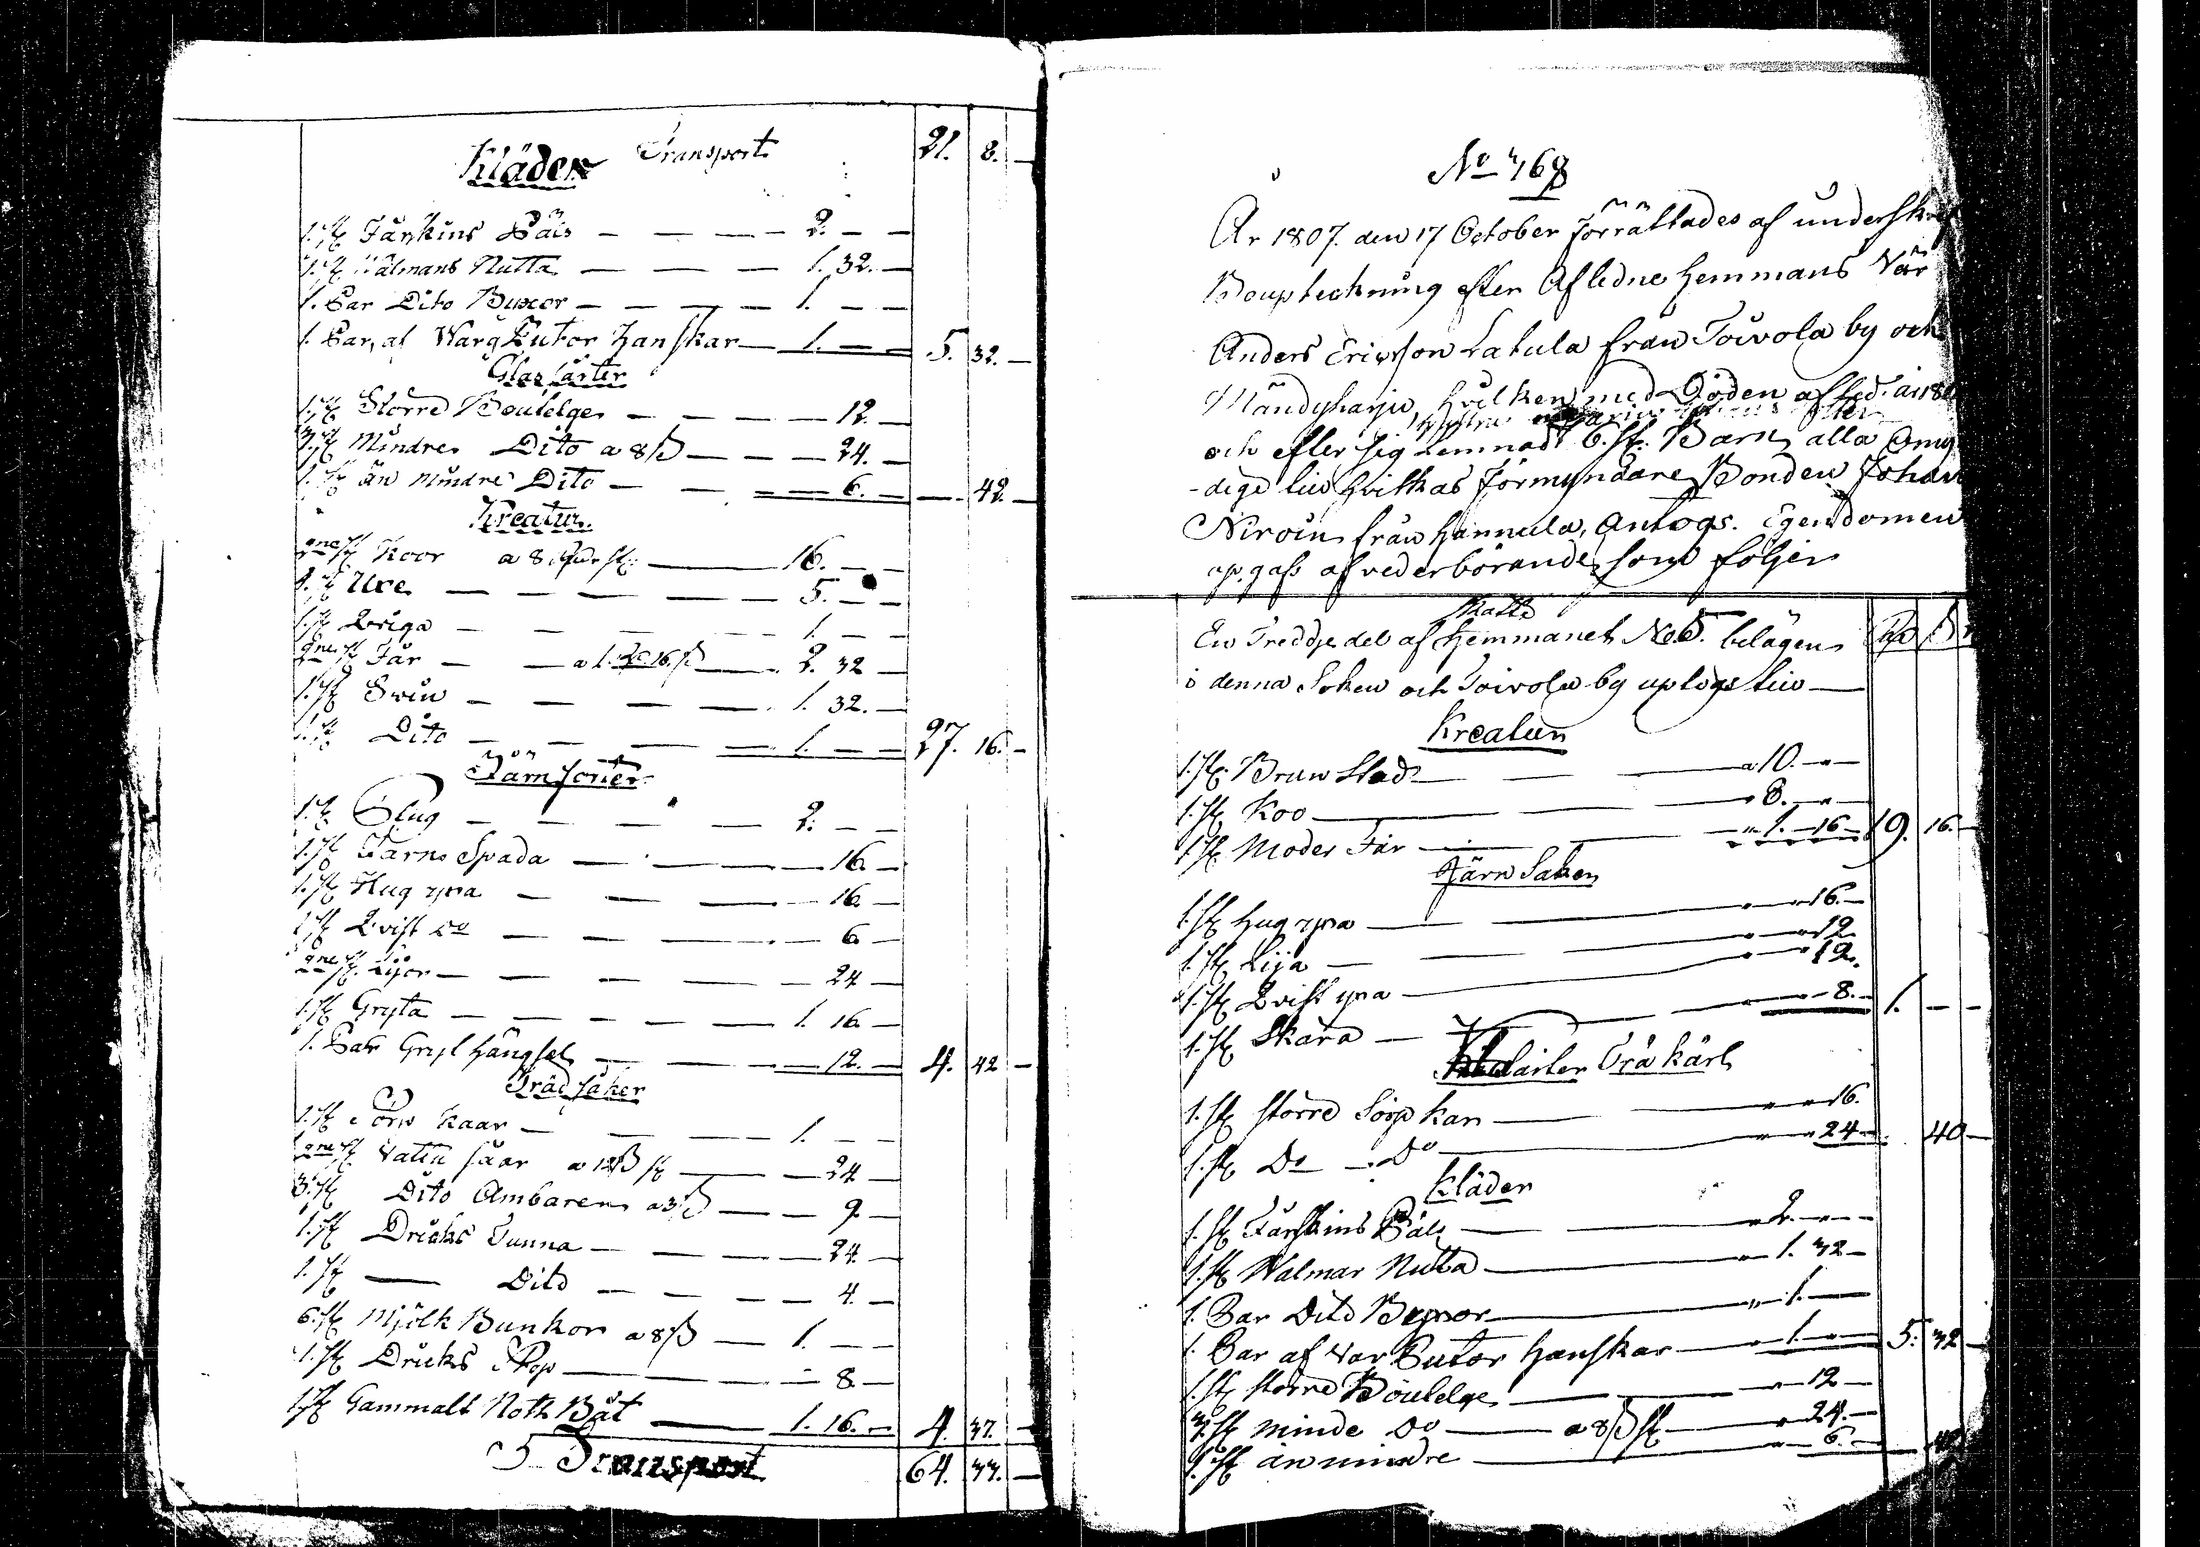 Transport 21. 8. —
Kläder
1. st Fårskins Päls — — — 2. — —
1. st Wálmans Nutta — — — 1. 32. —
1. Par Dito Buxor — — — 1. — —
1. Par, af Warg Futor Hanskar — 1. — — 5. 32. —
Glas sårter
1. st Större Boutelge — — — 12. —
3. st Mindre Dito a 8 ß — — — 24. —
1. st än mindre Dito — — — 6. — — 42. —
Kreatur
2ne st Koor a 8 st: — 16. — —
1. st Uxe — — — 5. — —
1. st Qviga — — — 1. — —
2ne st Får — — a 1. 16. ß — 2. 32 —
1. st Swin — — — 1. 32. —
1. st Dito — — — 1. — — 27. 16. —
Järn sorter
1. st Plug — — — 2. — —
1. st Järns Spada — — — 16. —
1. st Hug yxa — — — 16. —
1. st Qvist Do — — — 6. —
2ne st Lijor — — — 24 —
1. st Gryta — — — 1. 16. —
1. Par Gryt hängsel — — 12. — 4. 42 —
Träd saker
1. st Sörp Kaar — — — 1. — —
2ne st Vatn såar a 12 ß st — — 24 —
3. st Dito Ambaren a 3 ß — — 9. —
1. st Dricks Tunna — — — 24. —
1. st — Dito — — — 4. —
6. st Mjölk Bunkor a 8 ß — 1. — —
1. st Dricks Stop — — 8. —
1. st Gammalt Noth Båt — 1. 16. — 4. 37. —
Transport 64. 33. —
No 468
År 1807. den 17 October förrättades af underskref
Bouptechning efter Afledne Hemmans
Anders Ericsson Latula från Toivola by och
Mändyharju, hvilken med Döden afled. år 180
och efter sig lemnadt 6. st. Barn, alla Omy
-dige till hvilkas förmyndare Bonden Johan
Niroin från Hannula, Antogs. Egendomen
upgafs af vederbörande som följer
Skatte
En Tredje del af Hemmanet No 5. belägen
i denna Soken och Toivola by uptogs till —
Kreatur
1. st. Brun Stod — — 10. — —
1. st. Koo — — 8. — —
1. st. Moder Får — — 1. 16 — 19. 16. —
Järn Saker
1. st Hug yxa — — 16. —
1. st Lija — — 12.
1. st Qvist yxa — — 12.
1. st Skära — — 8. — 1. — —
Trä kärl
1. st större Sörp kar — — 16.
1. st Do — Do — 24 — 40 —
Kläder
1. st Fårskins Päls — — 2. — —
1. st Walmar Nutta — — 1. 32 —
1. Par Dito Byxor — — 1. —
1. Par af Var Putor Hanskar — 1. — — 5. 32 —
1. st större Boutelge — — 12 —
3. st minde Do — a 8 ß st — 24. —
1. st än mindre — — 6. — — 42